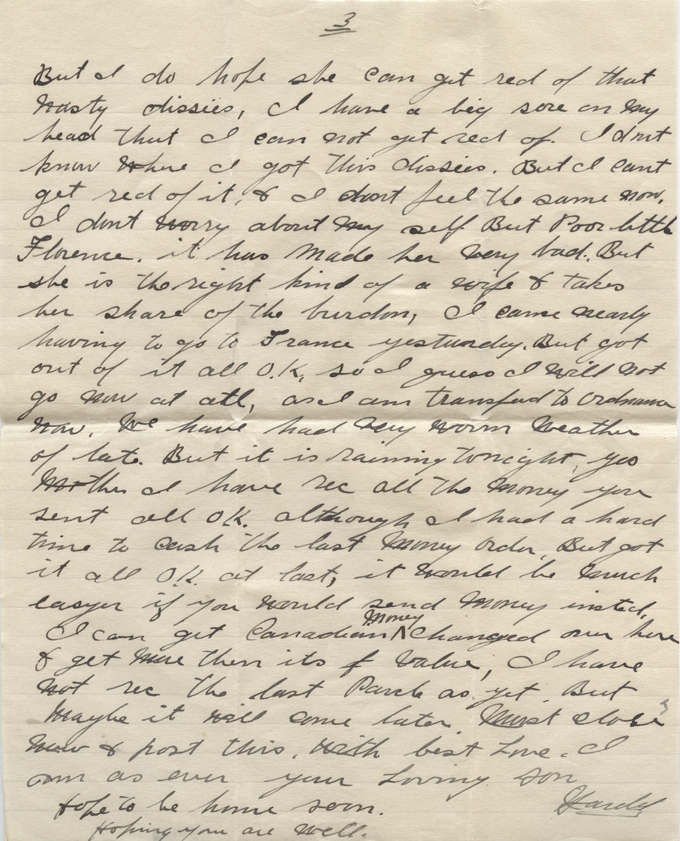 3
But I do hope she can get red of that
nasty dissies, I have a big sore on my
head that I can not get red of. I dont
know where I got this dissies. But I cant
get red of it, & I dont feel the same now,
I dont worry about my self But Poor little
Florence. it has made her very bad. But
she is the right kind of a wife & takes
her share of the burdon, I came nearly
having to go to France yesturday. But got
out of it all O.K. so I guess I will not
go now at all, as I am transfed to ordnance
now. We have had very worm weather
of late. But it is raining tonight, yes
Mother I have rec all the money you
sent all OK. although I had a hard
time to cash the last Money order, But got
it all O.K. at last, it would be much
easyer if you would send money insted.
I can get Canadian Money Changed over here
& get more then its f value, I have
not rec the last Parcle as yet. But
maybe it will come later. Must close
now & post this. With best Love. I
am as ever your Loving son
Hope to be home soon. Hardy
Hoping you are well.